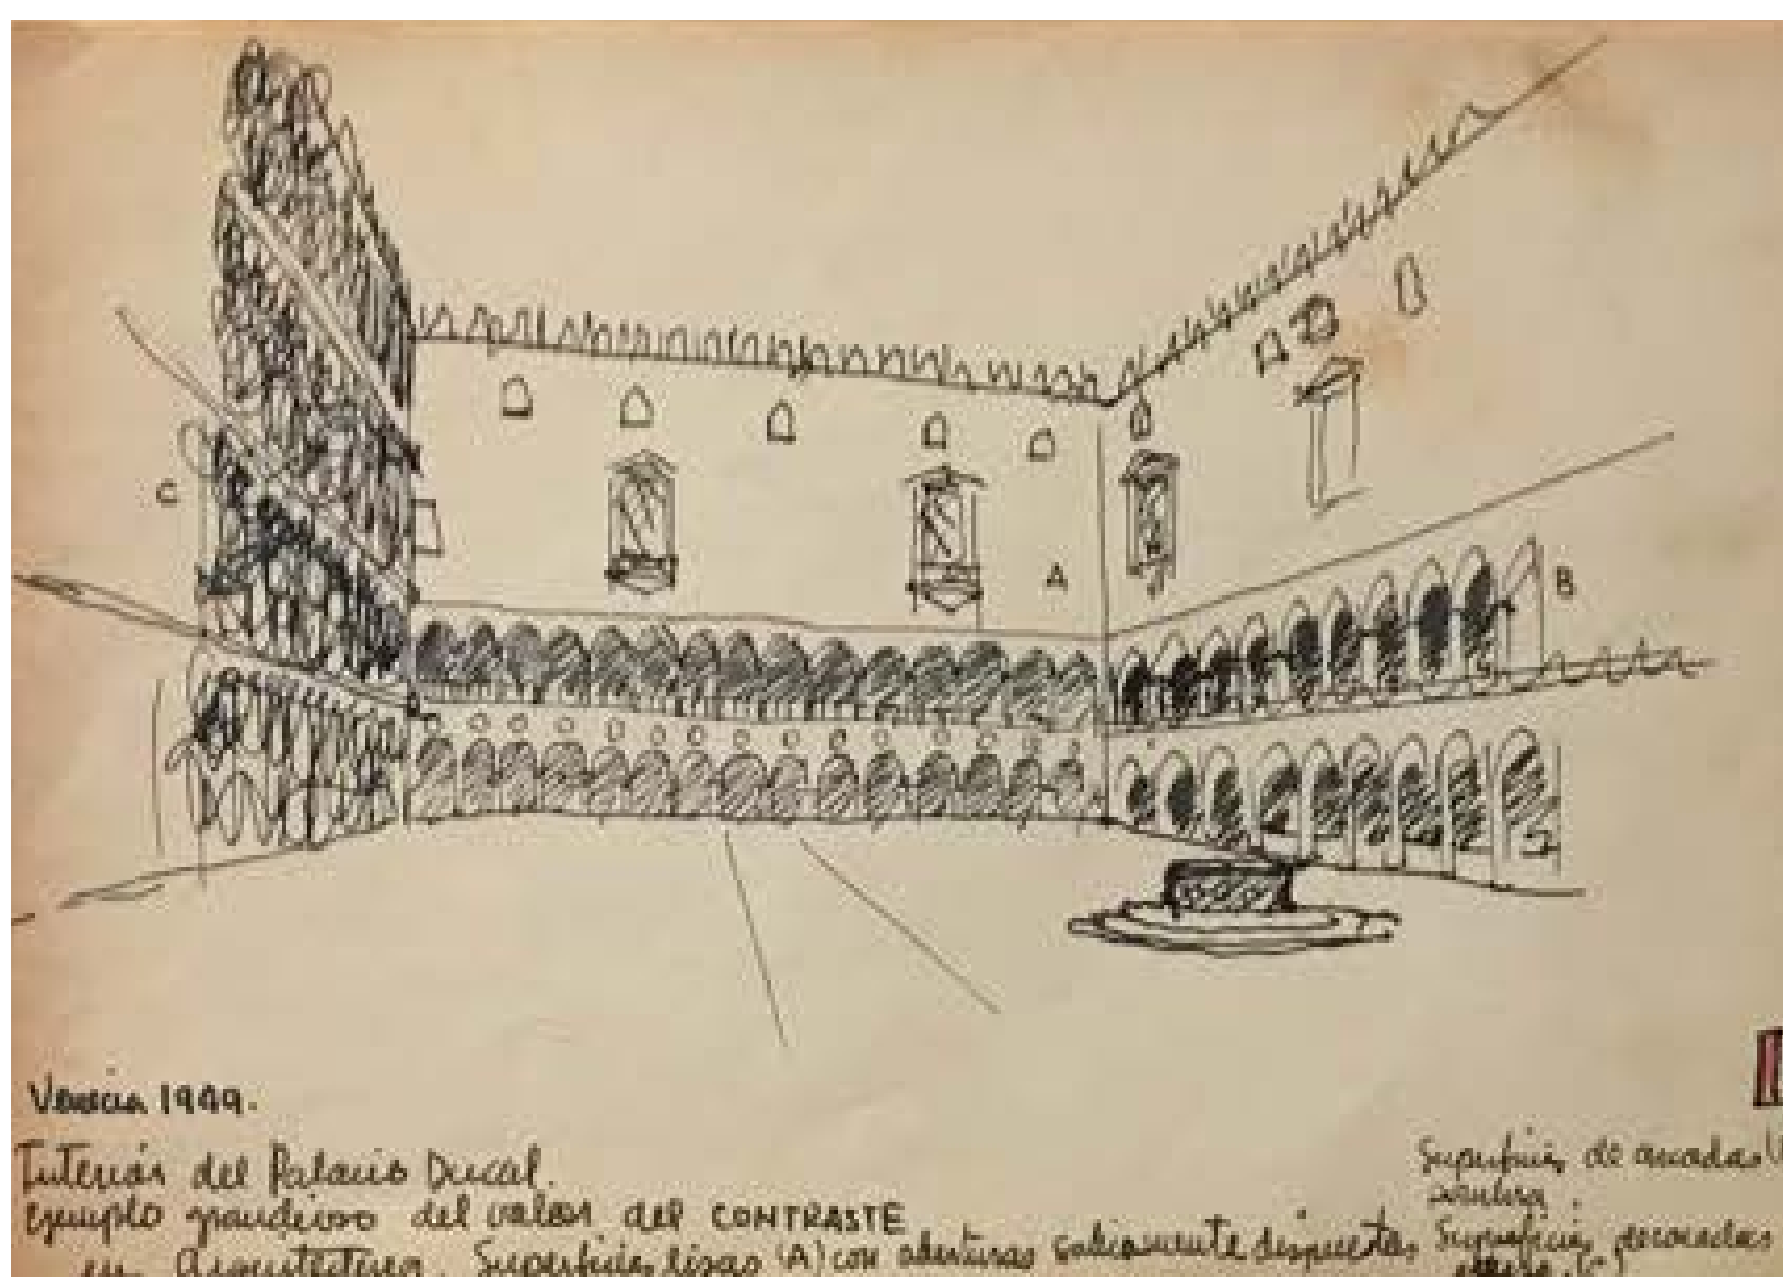 C
A
B
Venecia 1949.
Interior del Palacio Ducal.
Ejemplo grandioso del valor del CONTRASTE
en Arquitectura. Superficies lisas (A) con aberturas sabiamente dispuestas
Superficies de arcadas
sombra.
Superficies decoradas
(C)